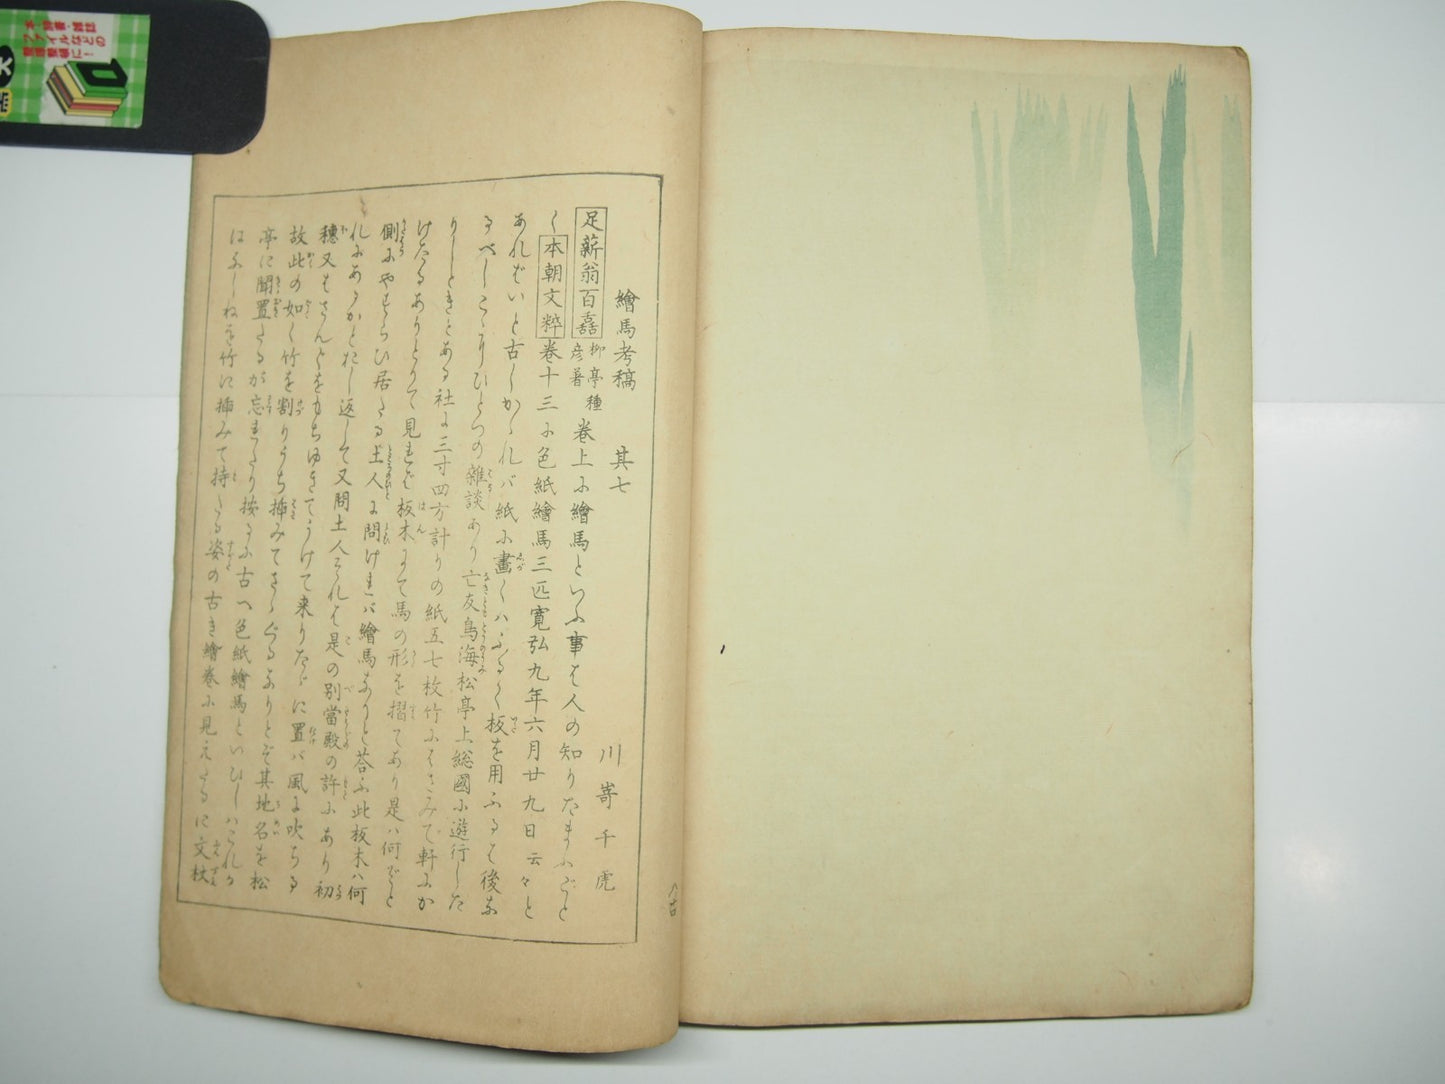 繪馬考稿　其七
川嵜千虎
足薪翁百嚞 柳亭種彦著 巻上ふ繪馬といふ事は人の知りたまふごと
く 本朝文粹 巻十三ふ色紙繪馬三匹寛弘九年六月廿九日云々と
あれバいと古しかゝれバ紙ふ畫くハふるく板を用ふるは後な
るべしこゝにひとつの雜談あり亡友鳥海松亭上総國ふ遊行した
りしときとある社に三寸四方計りの紙五七枚竹ふはさみて軒ふか
けたるありとりて見れば板木にて馬の形を摺てあり是ハ何ぞと
側ふやすらひ居たる土人に問けれバ繪馬なりと荅ふ此板木ハ何
れふあるかとおし返して又問土人それは是の別當殿の許ふあり初
穗又もさんどをもちゆきてうけて来りたゞに置バ風に吹ちる
故此の如く竹を割りうち挿みてさゝぐるなりとぞ其地名を松
亭に聞置たるが忘れたり按るふ古へ色紙繪馬といひしハこれか
はふしねを竹に挿みて持たる姿の古き繪巻ふ見えたるに文杖
八古